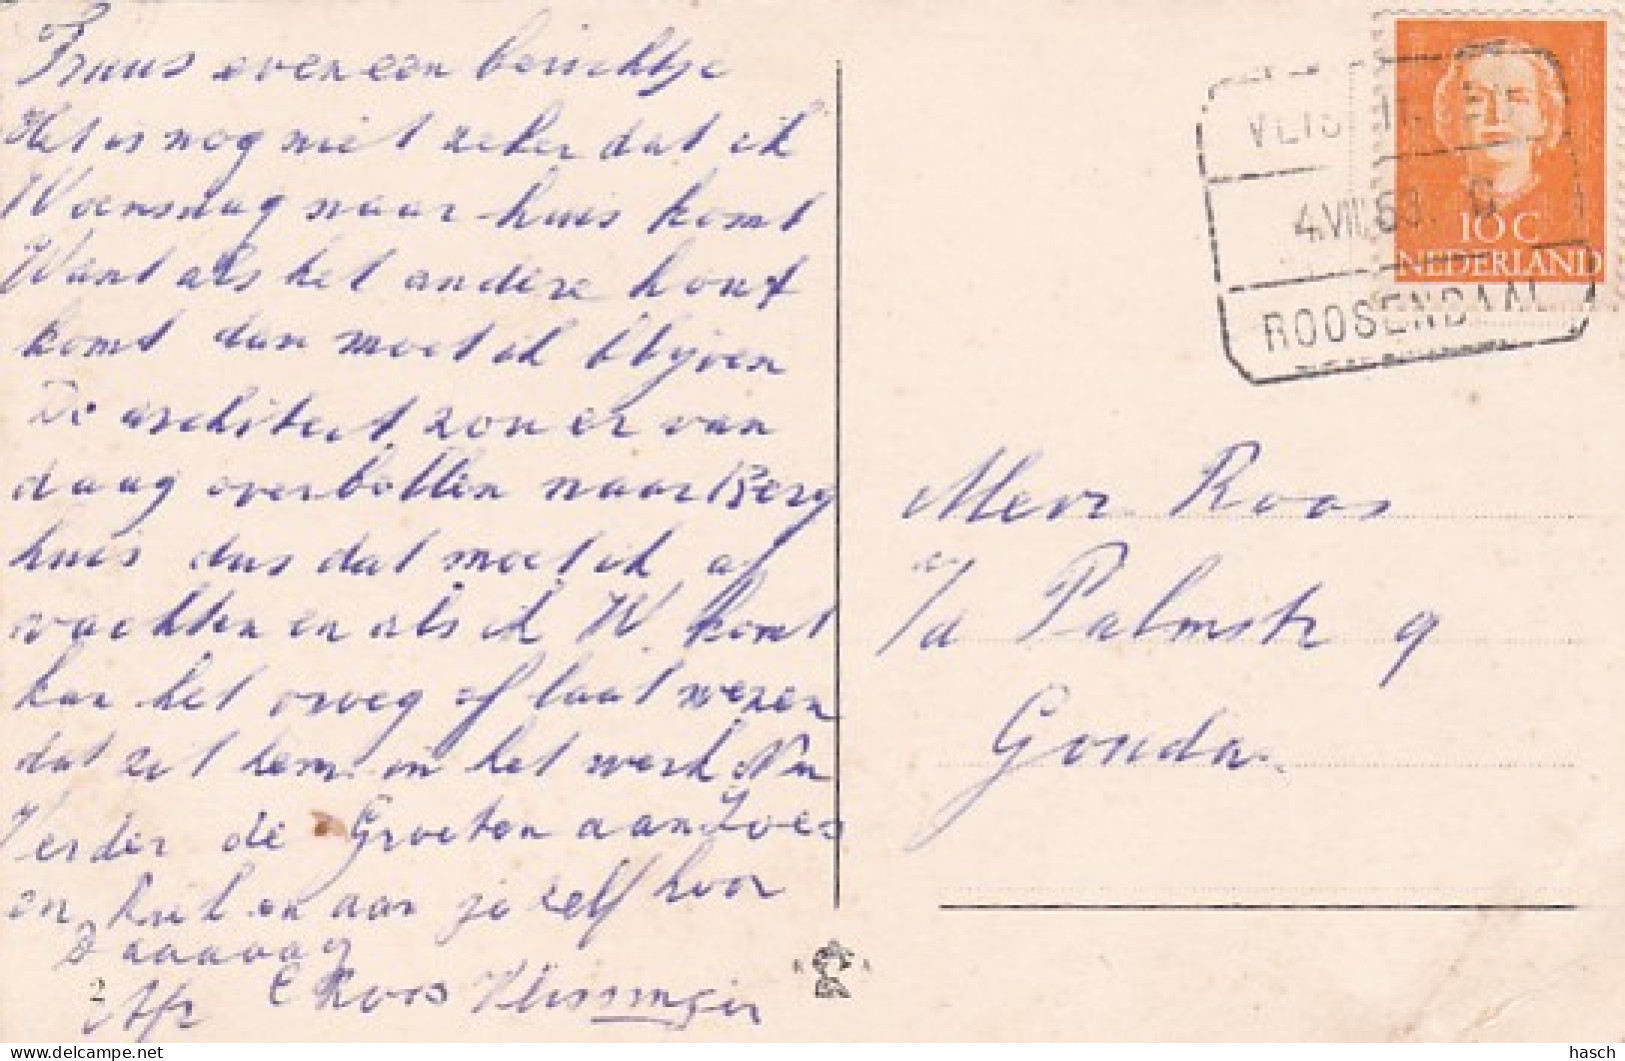 Truus even een berichtje
Het is nog niet zeker dat ik
Woensdag naar huis komt
Want als het andere hout
komt dan moet ik blijven
De architect zou er van
daag overbellen naar Berg
huis dus dat moet ik af
wachten en als ik W. komt
kan het ook nog of laat wezen
dat zit hem in het werk
Verder de Groeten aan Loes
en en aan je zelf hoor
Daaaaag
2 Afz C Roos Vlissingen
Mevr Roos
c/a Palmstr 9
Gouda.
VLIS
4.VIII.53. 6
ROOSENDAAL
10 C
NEDERLAND
hasch
www.delcampe.net